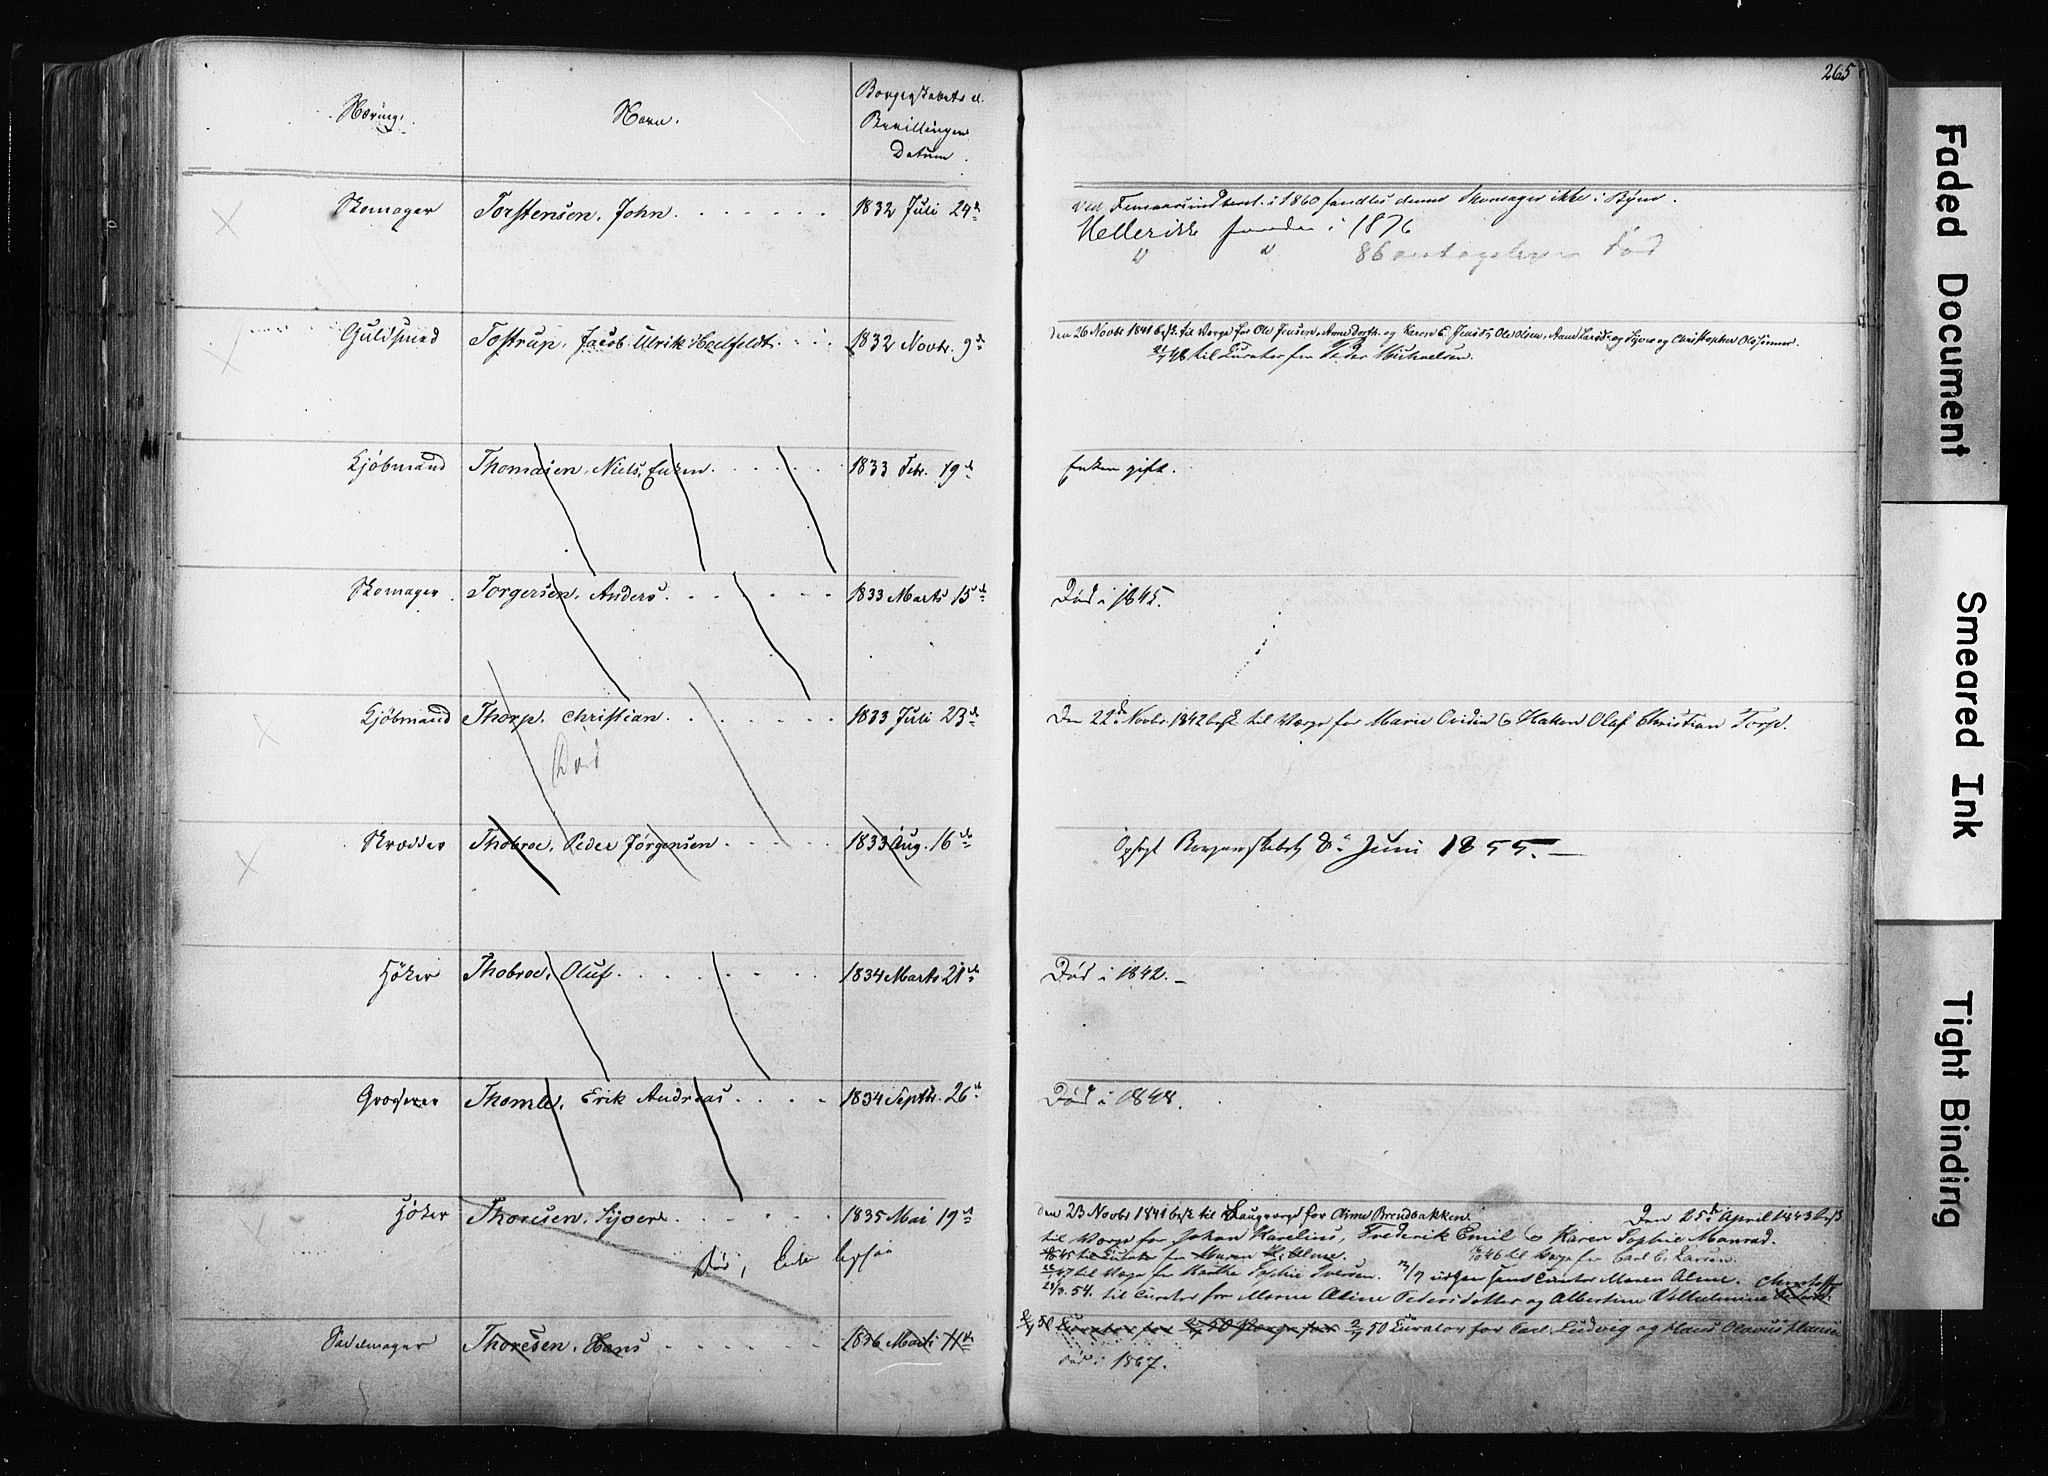 265
Næring.
Navn.
Borgerskabets el.
Bevillingens
Datum.
Skomager Torstensen, John. 1832 Juli 24de
Ved Femaarsindberet. i 1860 fandtes denne Skomager ikke i Byen.
Heller ikke i 1876
86 antageligen Død
Guldsmed Tostrup, Jacob Ulrik Holfeldt. 1832 Novbr. 9de
Den 26 Novbr 1841 besk. til Verge for Ole Jensen, Anne Dorth. og Karen E. Jensd., Ole Olsen, Anne Larsd. og og Christopher
48 til Curator for Peder Michaelsen.
Kjøbmand Thomasen, Niels, Enken. 1833 Febr. 19de
Enken gift.
Skomager Torgersen, Anders. 1833 Marts 15de
Død i 1845.
Kjøbmand Thorp, Christian. 1833 Juli 23de
Den 22de Novbr. 1842 besk til Verge for Marie Ovidia & Haken Olaf Christian Torp.
Død
Skrædder Thobroe, Peder Jørgensen 1833 Aug. 16de
Opsagt Borgerskabet 8de Juni 1855. —
Høker Thobroe, Oluf. 1834 Marts 21de
Død i 1842. —
Grosserer Thomle, Erik Andreas. 1834 Septbr. 26de
Død i 1848.
Høker Thoresen, Syver. 1835 Mai 19de
Død,
Den 23 Novbr 1841 besk til Laugverge for Anne Brendbakken. Den 25de April 1843 besk
til Verge for Johan Karelius, Frederik Emil & Karen Sophie Monrad.
45 til Curator for Maren 46 til Verge for Carl C. Larsen.
47 til Verge for Marthe Sophie Iversen. Curator Maren Aline. Christoffer
54. til Curator for Maren Aline Pedersdotter og Albertine Vilhelmine
Sadelmager Thoresen, Hans 1836 11te
50 Curator for 50 Verge for 50 Curator for Carl Ludvig og Hans Olavus Hansen
Død i 1867.
Faded Document
Smeared Ink
Tight Binding